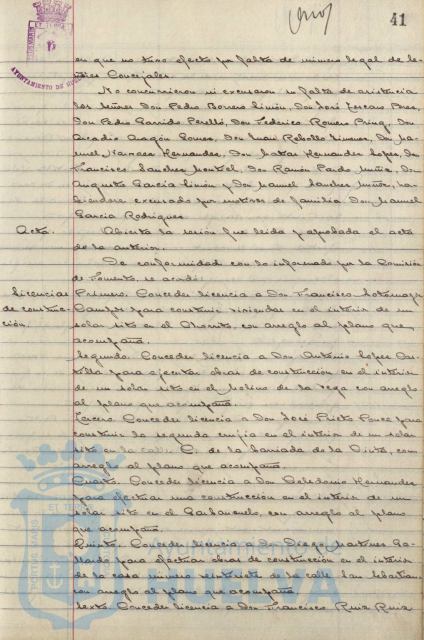 41
AYUNTAMIENTO DE HUELVA
en que no tuvo efecto por falta de número legal de Se-
ñores Concejales.
No concurrieron ni excusaron su falta de asistencia
los señores Don Pedro Borrero Limón, Don José Toscano Pérez,
Don Pedro Garrido Perelló, Don Federico Romero Pring, Don
Arcadio Aragón Gómez, Don Juan Rebollo Jimenez, Don Ma-
nuel Narvaez Hernandez, Don Matias Hernandez Lopez, Don
Francisco Sanchez Montiel, Don Ramón Pardo Muñiz, Don
Augusto García Limón y Don Manuel Sanchez Muñoz, ha-
biendose excusado por motivos de familia Don Manuel
García Rodriguez
Acta. Abierta la sesión fue leida y aprobada el acta
de la anterior.
De conformidad con lo informado por la Comisión
de Fomento, se acordó:
Licencias Primero. Conceder licencia a Don Francisco Sotomayor
de construc- para construir viviendas en el interior de un
ción. solar sito en el con arreglo al plano que
acompaña.
Segundo. Conceder licencia a Don Antonio Lopez
para ejecutar obras de construcción en el interior
de un solar sito en el Molino de la Vega con arreglo
al plano que acompaña.
Tercero. Conceder licencia a Don José Prieto Ponce para
construir la segunda crujia en el interior de un solar
sito en la calle C. de la barriada de la con
arreglo al plano que acompaña
Cuarto. Conceder licencia a Don Celedonio Hernandez
para efectuar una construcción en el interior de un
solar sito en el con arreglo al plano
que acompaña.
Quinto. Conceder licencia a Don Diego Martinez Ga-
llardo para efectuar obras de construcción en el interior
de la casa número veintisiete de la calle San Sebastian
con arreglo al plano que acompaña
Sexto. Conceder licencia a Don Francisco Ruiz Ruiz
Ayuntamiento de
HUELVA
PORTUS MARIS